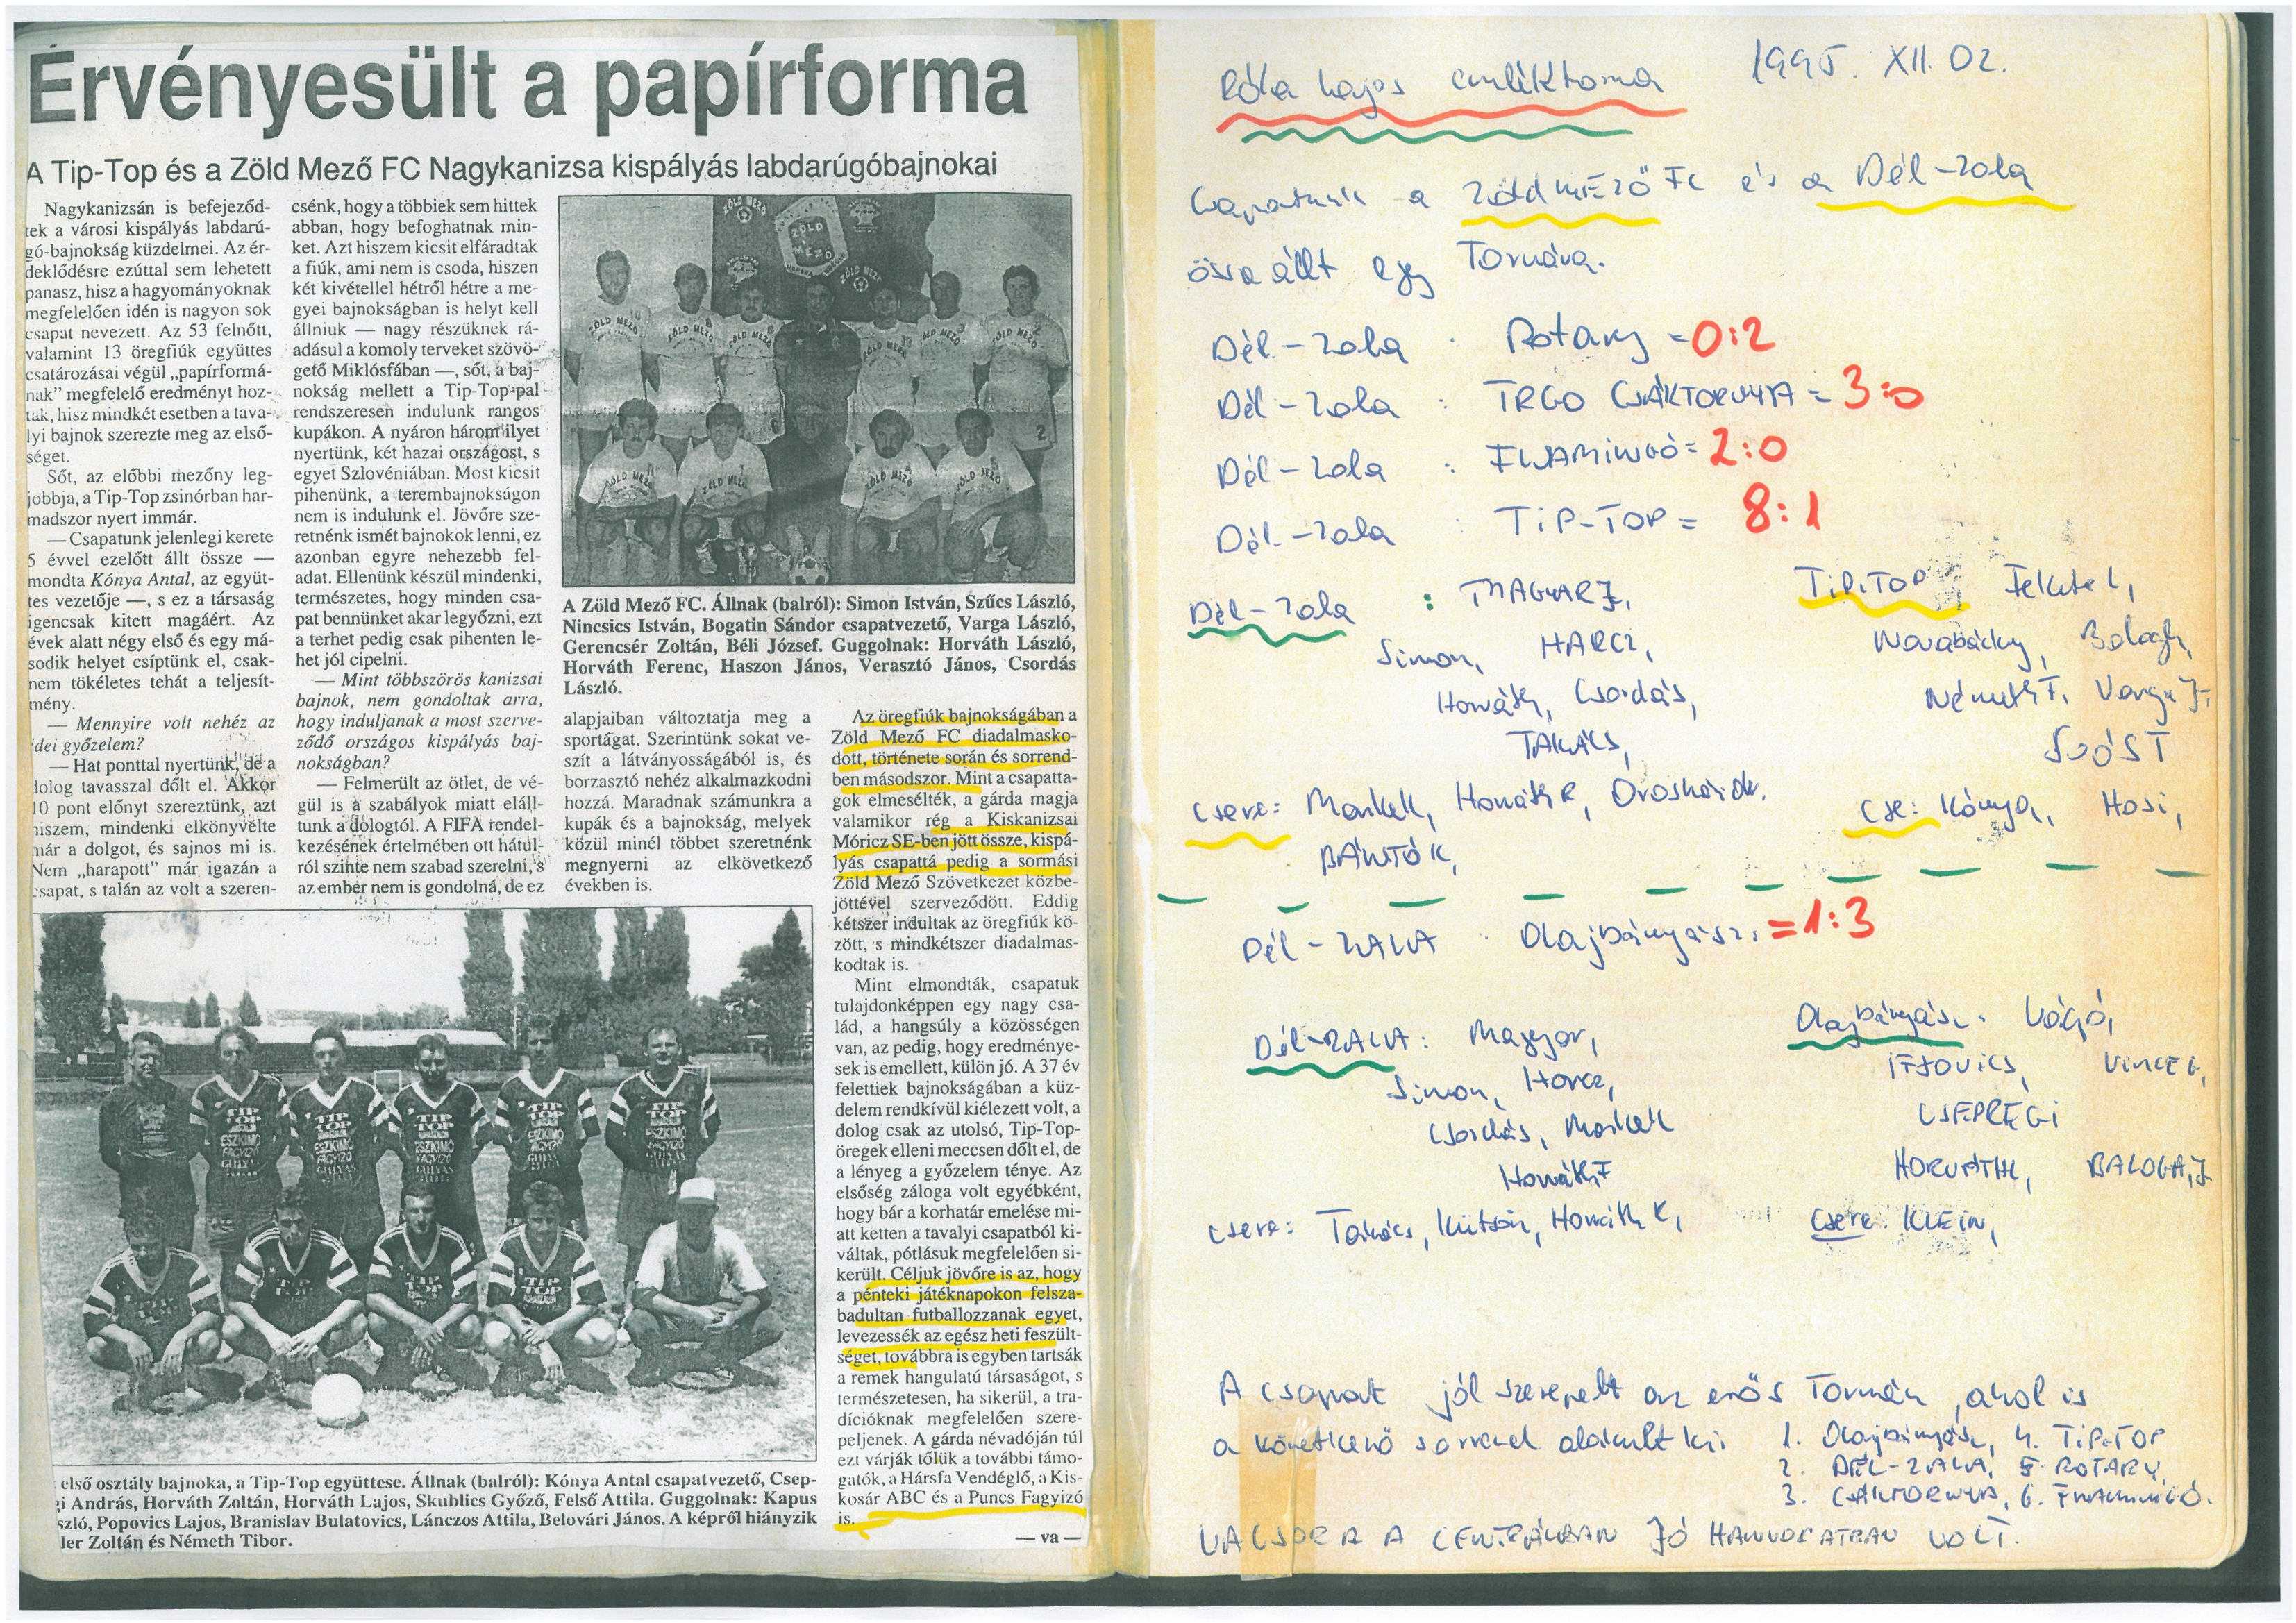 Érvényesült a papírforma
A Tip-Top és a Zöld Mező FC Nagykanizsa kispályás labdarúgóbajnokai
Nagykanizsán is befejeződ-
tek a városi kispályás labdarú-
gó-bajnokság küzdelmei. Az ér-
deklődésre ezúttal sem lehetett
panasz, hisz a hagyományoknak
megfelelően idén is nagyon sok
csapat nevezett. Az 53 felnőtt,
valamint 13 öregfiúk együttes
csatározásai végül „papírformá-
nak” megfelelő eredményt hoz-
tak, hisz mindkét esetben a tava-
lyi bajnok szerezte meg az első-
séget.
Sőt, az előbbi mezőny leg-
jobbja, a Tip-Top zsinórban har-
madszor nyert immár.
— Csapatunk jelenlegi kerete
5 évvel ezelőtt állt össze —
mondta Kónya Antal, az együt-
tes vezetője —, s ez a társaság
igencsak kitett magáért. Az
évek alatt négy első és egy má-
sodik helyet csíptünk el, csak-
nem tökéletes tehát a teljesít-
mény.
— Mennyire volt nehéz az
idei győzelem?
— Hat ponttal nyertünk, de a
dolog tavasszal dőlt el. Akkor
10 pont előnyt szereztünk, azt
hiszem, mindenki elkönyvelte
már a dolgot, és sajnos mi is.
Nem „harapott” már igazán a
csapat, s talán az volt a szeren-
csénk, hogy a többiek sem hittek
abban, hogy befoghatnak min-
ket. Azt hiszem kicsit elfáradtak
a fiúk, ami nem is csoda, hiszen
két kivétellel hétről hétre a me-
gyei bajnokságban is helyt kell
állniuk — nagy részüknek rá-
adásul a komoly terveket szövö-
gető Miklósfában —, sőt, a baj-
nokság mellett a Tip-Top-pal
rendszeresen indulunk rangos
kupákon. A nyáron három ilyet
nyertünk, két hazai országost, s
egyet Szlovéniában. Most kicsit
pihenünk, a terembajnokságon
nem is indulunk el. Jövőre sze-
retnénk ismét bajnokok lenni, ez
azonban egyre nehezebb fel-
adat. Ellenünk készül mindenki,
természetes, hogy minden csa-
pat bennünket akar legyőzni, ezt
a terhet pedig csak pihenten le-
het jól cipelni.
— Mint többszörös kanizsai
bajnok, nem gondoltak arra,
hogy induljanak a most szerve-
ződő országos kispályás baj-
nokságban?
— Felmerült az ötlet, de vé-
gül is a szabályok miatt eláll-
tunk a dologtól. A FIFA rendel-
kezésének értelmében ott hátul-
ról szinte nem szabad szerelni, s
az ember nem is gondolná, de ez
ZÖLD
MEZŐ
A Zöld Mező FC. Állnak (balról): Simon István, Szűcs László,
Nincsics István, Bogatin Sándor csapatvezető, Varga László,
Gerencsér Zoltán, Béli József. Guggolnak: Horváth László,
Horváth Ferenc, Haszon János, Verasztó János, Csordás
László.
alapjaiban változtatja meg a
sportágat. Szerintünk sokat ve-
szít a látványosságából is, és
borzasztó nehéz alkalmazkodni
hozzá. Maradnak számunkra a
kupák és a bajnokság, melyek
közül minél többet szeretnénk
megnyerni az elkövetkező
években is.
Az öregfiúk bajnokságában a
Zöld Mező FC diadalmasko-
dott, története során és sorrend-
ben másodszor. Mint a csapatta-
gok elmesélték, a gárda magja
valamikor rég a Kiskanizsai
Móricz SE-ben jött össze, kispá-
lyás csapattá pedig a sormási
Zöld Mező Szövetkezet közbe-
jöttével szerveződött. Eddig
kétszer indultak az öregfiúk kö-
zött, s mindkétszer diadalmas-
kodtak is.
Mint elmondták, csapatuk
tulajdonképpen egy nagy csa-
lád, a hangsúly a közösségen
van, az pedig, hogy eredménye-
sek is emellett, külön jó. A 37 év
felettiek bajnokságában a küz-
delem rendkívül kiélezett volt, a
dolog csak az utolsó, Tip-Top-
öregek elleni meccsen dőlt el, de
a lényeg a győzelem ténye. Az
elsőség záloga volt egyébként,
hogy bár a korhatár emelése mi-
att ketten a tavalyi csapatból ki-
váltak, pótlásuk megfelelően si-
került. Céljuk jövőre is az, hogy
a pénteki játéknapokon felsza-
badultan futballozzanak egyet,
levezessék az egész heti feszült-
séget, továbbra is egyben tartsák
a remek hangulatú társaságot, s
természetesen, ha sikerül, a tra-
dícióknak megfelelően szere-
peljenek. A gárda névadóján túl
ezt várják tőlük a további támo-
gatók, a Hársfa Vendéglő, a Kis-
kosár ABC és a Puncs Fagyizó
is.
— va —
TIP TOP ESZKIMÓ FAGYIZÓ
első osztály bajnoka, a Tip-Top együttese. Állnak (balról): Kónya Antal csapatvezető, Csep-
i András, Horváth Zoltán, Horváth Lajos, Skublics Győző, Felső Attila. Guggolnak: Kapus
szló, Popovics Lajos, Branislav Bulatovics, Lánczos Attila, Belovári János. A képről hiányzik
ler Zoltán és Németh Tibor.
Róka Lajos emléktorna 1995. XII. 02.
Csapatunk a Zöld MEZŐ FC és a Dél-Zala
össze állt egy Tornára.
Dél-Zala : Rotary = 0:2
Dél-Zala : TRGO CSÁKTORNYA = 3:0
Dél-Zala : FLAMINGÓ = 2:0
Dél-Zala : TiP-TOP = 8:1
Dél-Zala : MAGYAR J, TiP-TOP Fekete L,
Simon, HARCZ, Balogh,
Horváth, Csordás, Németh F, Varga J,
TAKÁCS, SOÓS T
Csere: Merkek, Horváth R, Cse: Kónya, Hosi,
Dél-ZALA : Olajbányász = 1:3
Dél-ZALA: Magyar, Olajbányász: Vágó,
Simon, Harcz, VINCE
Csordás, Merkek CSEPREGI
Horváth F HORVÁTH, BALOGH J
Csere: Takács, Horváth K, Csere KLEIN,
A csapat jól szerepelt az erős Tornán, ahol is
a következő sorrend alakult ki: 1. Olajbányász, 4. TiP-TOP
2. DÉL-ZALA, 5 ROTARY,
3. CSÁKTORNYA, 6. FLAMINGÓ.
VACSORA A CENTRÁLBAN JÓ HANGULATBAN VOLT.